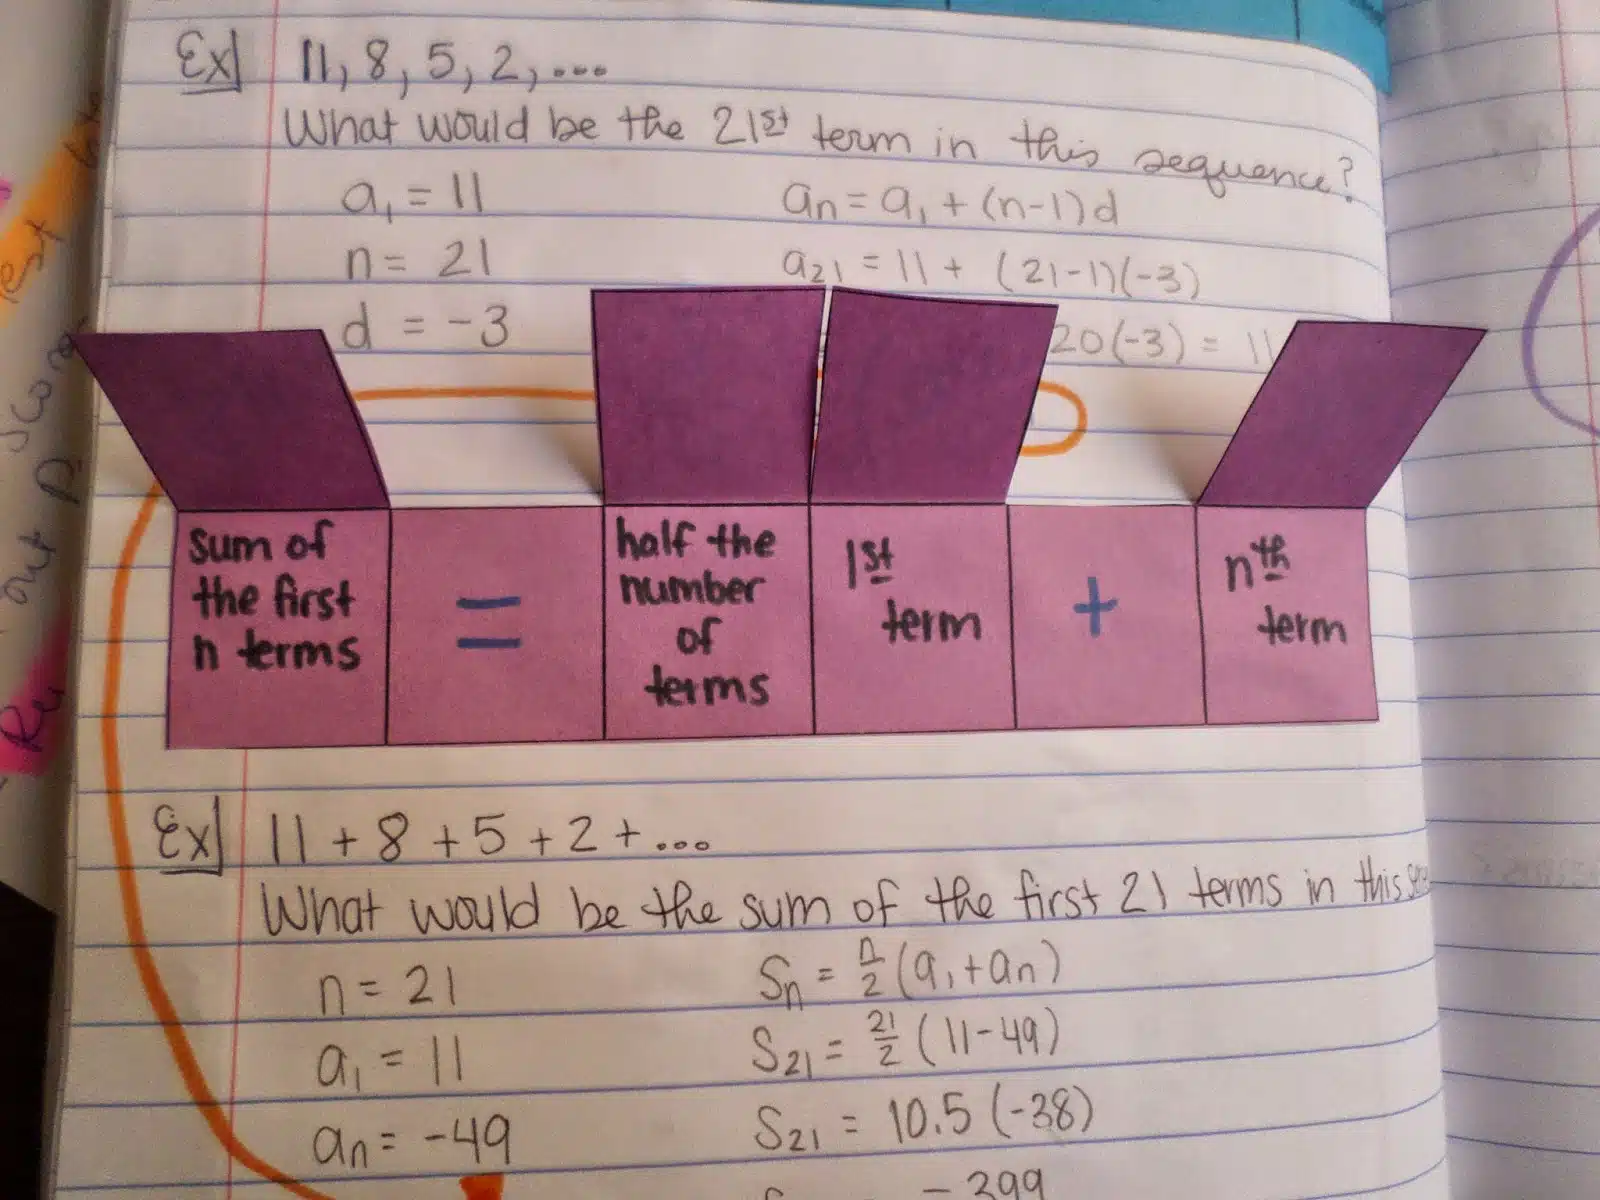 Ex 11, 8, 5, 2, ...
What would be the 21st term in this sequence?
a₁ = 11
aₙ = a₁ + (n-1)d
n = 21
a₂₁ = 11 + (21-1)(-3)
d = -3
20(-3) = 11
sum of
the first
n terms
=
half the
number
of
terms
1st
term
+
nth
term
Ex 11 + 8 + 5 + 2 + ...
What would be the sum of the first 21 terms in this
n = 21
Sₙ = n/2 (a₁ + aₙ)
a₁ = 11
S₂₁ = 21/2 (11-49)
aₙ = -49
S₂₁ = 10.5 (-38)
-399
out